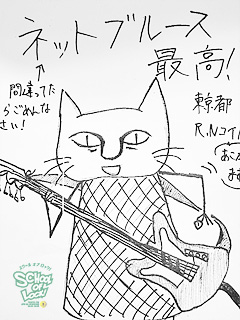 ネットブルース
最高!
間違ってた
らごめんな
さい!
東京都
R.Nコイル
SCHOOL
OF
LOCK!